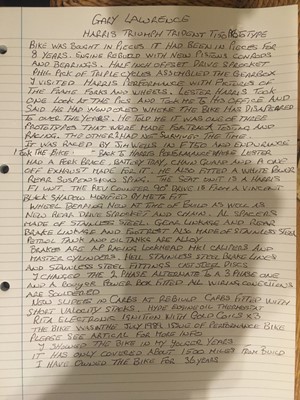 GARY LAWRENCE
HARRIS TRIUMPH TRIDENT T150 PROTOTYPE
BIKE WAS BOUGHT IN PIECES IT HAD BEEN IN PIECES FOR
8 YEARS. ENGINE REBUILD WITH NEW PISTONS CONRODS
AND BEARINGS. HALF INCH OFFSET DRIVE SPROCKET
PHIL PICK OF TRIPLE CYCLES ASSEMBLED THE GEARBOX
I VISITED HARRIS PERFORMANCE WITH PICTURES OF
THE FRAME FORKS AND WHEELS. LESTER HARRIS TOOK
ONE LOOK AT THE PICS AND TOOK ME TO HIS OFFICE AND
SAID HE HAD WONDERED WHERE THE BIKE HAS DISAPPEARED
TO OVER THE YEARS. HE TOLD ME IT WAS ONE OF THREE
PROTOTYPES THAT WERE MADE FOR TRACK TESTING AND
RACING. THE OTHER 2 HAD NOT SURVIVED THE TIME
IT WAS RACED BY JIM WELLS IN F1 750 AND ENDURANCE
FOR THE FIRE. BACK TO HARRIS PERFORMANCE WHERE LESTER
HAD A FORK BRACE, BATTERY TRAY, CHAIN GUARD AND A ONE
OFF EXHAUST MADE FOR IT. HE ALSO FITTED A WHITE POWER
REAR SUSPENSION SPRING. THE SEAT UNIT IS A HARRIS
F1 UNIT. THE REV COUNTER 90° DRIVE IS FROM A VINCENT
BLACK SHADOW MODIFIED BY ME TO FIT
WHEEL BEARINGS NEW AT TIME OF BUILD AS WELL AS
NEW REAR DRIVE SPROCKET AND CHAIN. AL SPACERS
MADE OF STAINLESS STEEL. GEAR LINKAGE AND REAR
BRAKE LINKAGE AND FOOTREST ALSO MADE OF STAINLESS STEEL
PETROL TANK AND OIL TANKS ARE ALLOY
BRAKES ARE AP RACING LOCKHEAD MK1 CALIPERS AND
MASTER CYLINDERS. HELL STAINLESS STEEL BRAKE LINES
AND STAINLESS STEEL FITTINGS CAST IRON DISCS
I CHANGED THE 2 PHASE ALTERNATOR TO A 3 PHASE ONE
AND A BOYER POWER BOX FITTED ALL WIRING CONNECTIONS
ARE SOLDERED
NEW SLIDES IN CARBS AT REBUILD CARBS FITTED WITH
SHORT VELOCITY STACKS. HYDE ENGINE OIL THERMOSTAT
RITA ELECTRONIC IGNITION WITH GOLD COILS X3
THE BIKE WAS IN THE JULY 1981 ISSUE OF PERFORMANCE BIKE
PLEASE SEE ARTICAL FOR MORE INFO
I SHOWED THE BIKE IN MY YOUNGER YEARS
IT HAS ONLY COVERED ABOUT 1500 MILES FROM BUILD
I HAVE OWNED THE BIKE FOR 36 YEARS